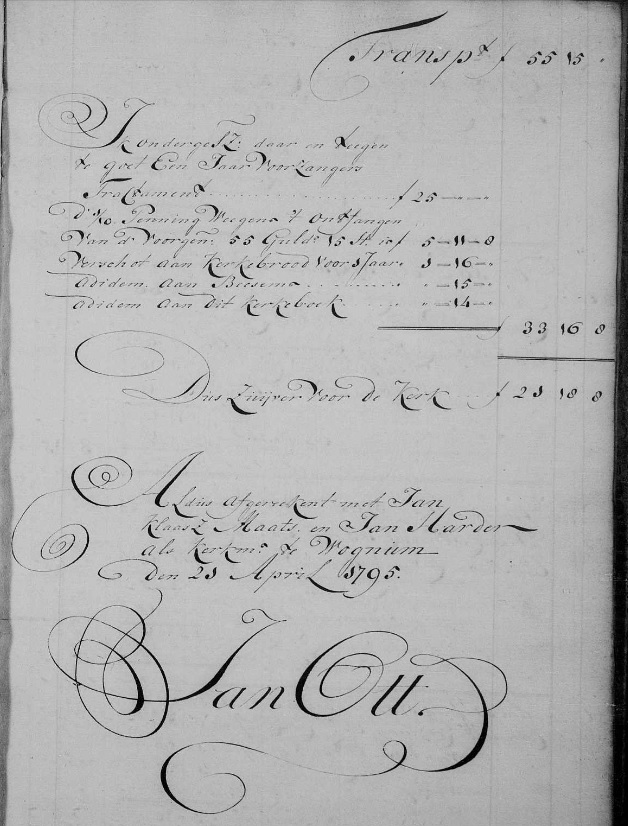 Transpt f 55 15 "
Ik ondergesz: daar en teegen
te goet Een Jaar Voorzangers
Tractament f 25 - " - "
Penning Weegens 't ontfangen
Van d' Voorgen: 55 Guld: 15 St: is f 5 - 11 - 8
Verschot aan Kerkebrood Voor 1 Jaar " 1 - 16 - "
adidem aan Beesems " " - 15 - "
adidem aan dit Kerkeboek " " - 14 - "
f 33 16 8
Dus Zuijver Voor de Kerk f 21 18 8
Aldus afgereekent met Jan
Klaasz Maats, en Jan Harder
als Kerkmrs te Wognum
Den 21 April 1795.
Jan Ott.